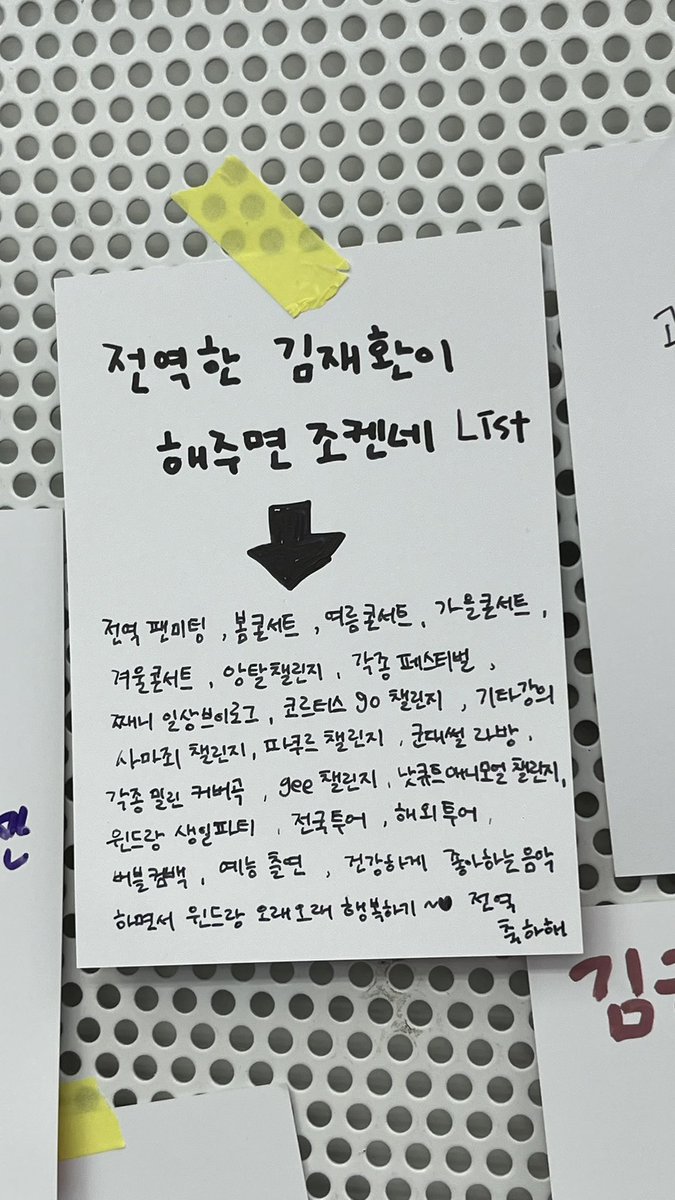 전역한 김재환이
해주면 조켄네 LIst
전역 팬미팅, 봄콘서트, 여름콘서트, 가을콘서트,
겨울콘서트, 앙탈챌린지, 각종 페스티벌,
째니 일상브이로그, 코르티스 go 챌린지, 기타강의
사마죄 챌린지, 파쿠르 챌린지, 군대썰 라방,
각종 밀린 커버곡, gee 챌린지, 낫큐트애니모얼 챌린지,
윈드랑 생일파티, 전국투어, 해외투어,
버블컴백, 예능 출연, 건강하게 좋아하는 음악
하면서 윈드랑 오래오래 행복하기 ~♥ 전역
축하해